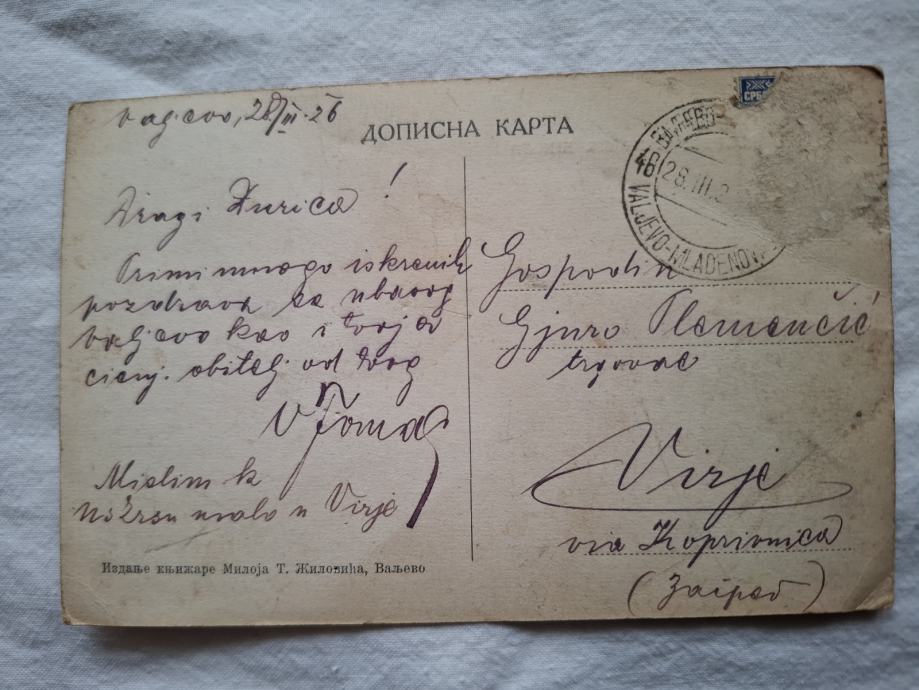 Valjevo, 28/III. 26
ДОПИСНА КАРТА
СРБ
ВАЉЕВО
4B
28.III.2
VALJEVO-MLADENOV
Dragi Gjurica!
Primi mnogo iskrenih
pozdrava sa ubavog
Valjeva kao i tvoja
cienj. obitelj od tvog
V Toma
Mislim k
Uskrsu malo u Virje
Gospodin
Gjuro Plemenčić
trgovac
Virje
via Koprivnica
Издање књижаре Милоја Т. Жиловића, Ваљево